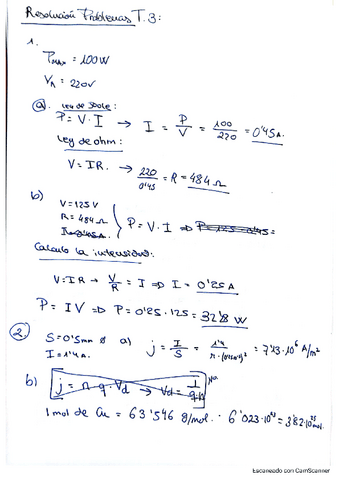 Resolución Problemas T.3:
1.
Pmax = 100W
VA = 220V
a). Ley de Joule:
P = V · I → I = P/V = 100/220 = 0'45 A.
Ley de ohm:
V = IR. → 220/0'45 = R = 484 Ω
b) V = 125 V
R = 484 Ω
I = 0'45 A
P = V · I ⇒ P = 125 · 0'45 =
Calculo la intensidad:
V = I R → V/R = I ⇒ I = 0'25 A
P = IV ⇒ P = 0'25 · 125 = 32'8 W
2. S = 0'5mm ø a) j = I/S = = 7'13·10⁶ A/m²
I = 1'4 A.
b) j = n · q · Vd → Vd =
1 mol de Cu = 63'546 g/mol. · 6'023·10²³ =
Escaneado con CamScanner